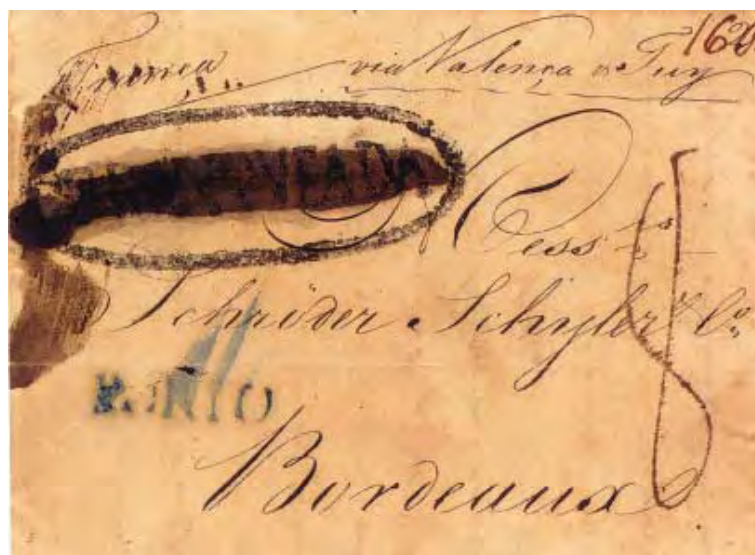 160
França via Valença & Tuy
Mess.rs
Schröder Schyler & Co.
PORTO
Bordeaux